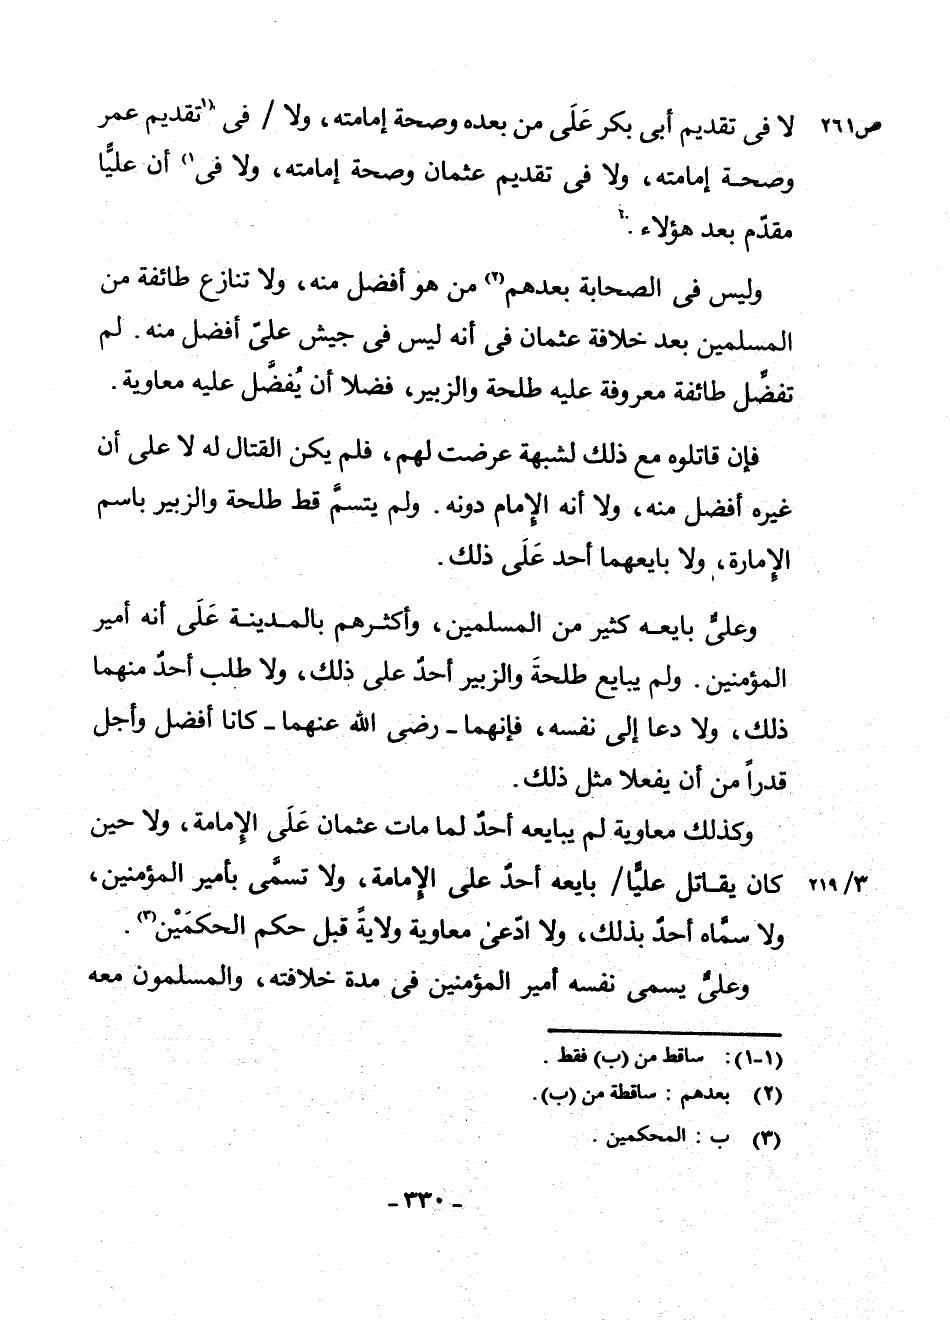 ص٢٦١ لا فى تقديم أبى بكر عَلَى من بعده وصحة إمامته، ولا / فى (١تقديم عمر
وصحة إمامته، ولا فى تقديم عثمان وصحة إمامته، ولا فى١) أن عليًّا
مقدّم بعد هؤلاء .
وليس فى الصحابة بعدهم(٢) من هو أفضل منه، ولا تنازع طائفة من
المسلمين بعد خلافة عثمان فى أنه ليس فى جيش علىّ أفضل منه. لم
تفضِّل طائفة معروفة عليه طلحة والزبير، فضلا أن يُفضَّل عليه معاوية.
فإن قاتلوه مع ذلك لشبهة عرضت لهم، فلم يكن القتال له لا على أن
غيره أفضل منه، ولا أنه الإِمام دونه. ولم يتسمَّ قط طلحة والزبير باسم
الإِمارة، ولا بايعهما أحد عَلَى ذلك.
وعلىٌّ بايعه كثير من المسلمين، وأكثرهم بالمدينة عَلَى أنه أمير
المؤمنين. ولم يبايع طلحةَ والزبير أحدٌ على ذلك، ولا طلب أحدٌ منهما
ذلك، ولا دعا إلى نفسه، فإنهما ـ رضى الله عنهما ـ كانا أفضل وأجل
قدراً من أن يفعلا مثل ذلك.
وكذلك معاوية لم يبايعه أحدٌ لما مات عثمان عَلَى الإِمامة، ولا حين
٣/ ٢١٩ كان يقاتل عليًّا/ بايعه أحدٌ على الإِمامة، ولا تسمَّى بأمير المؤمنين،
ولا سمَّاه أحدٌ بذلك، ولا ادّعىٰ معاوية ولايةً قبل حكم الحكمَيْن(٣).
وعلىٌّ يسمى نفسه أمير المؤمنين فى مدة خلافته، والمسلمون معه
(١-١): ساقط من (ب) فقط .
(٢) بعدهم : ساقطة من (ب).
(٣) ب : المحكمين .
ـ ٣٣٠ ـ